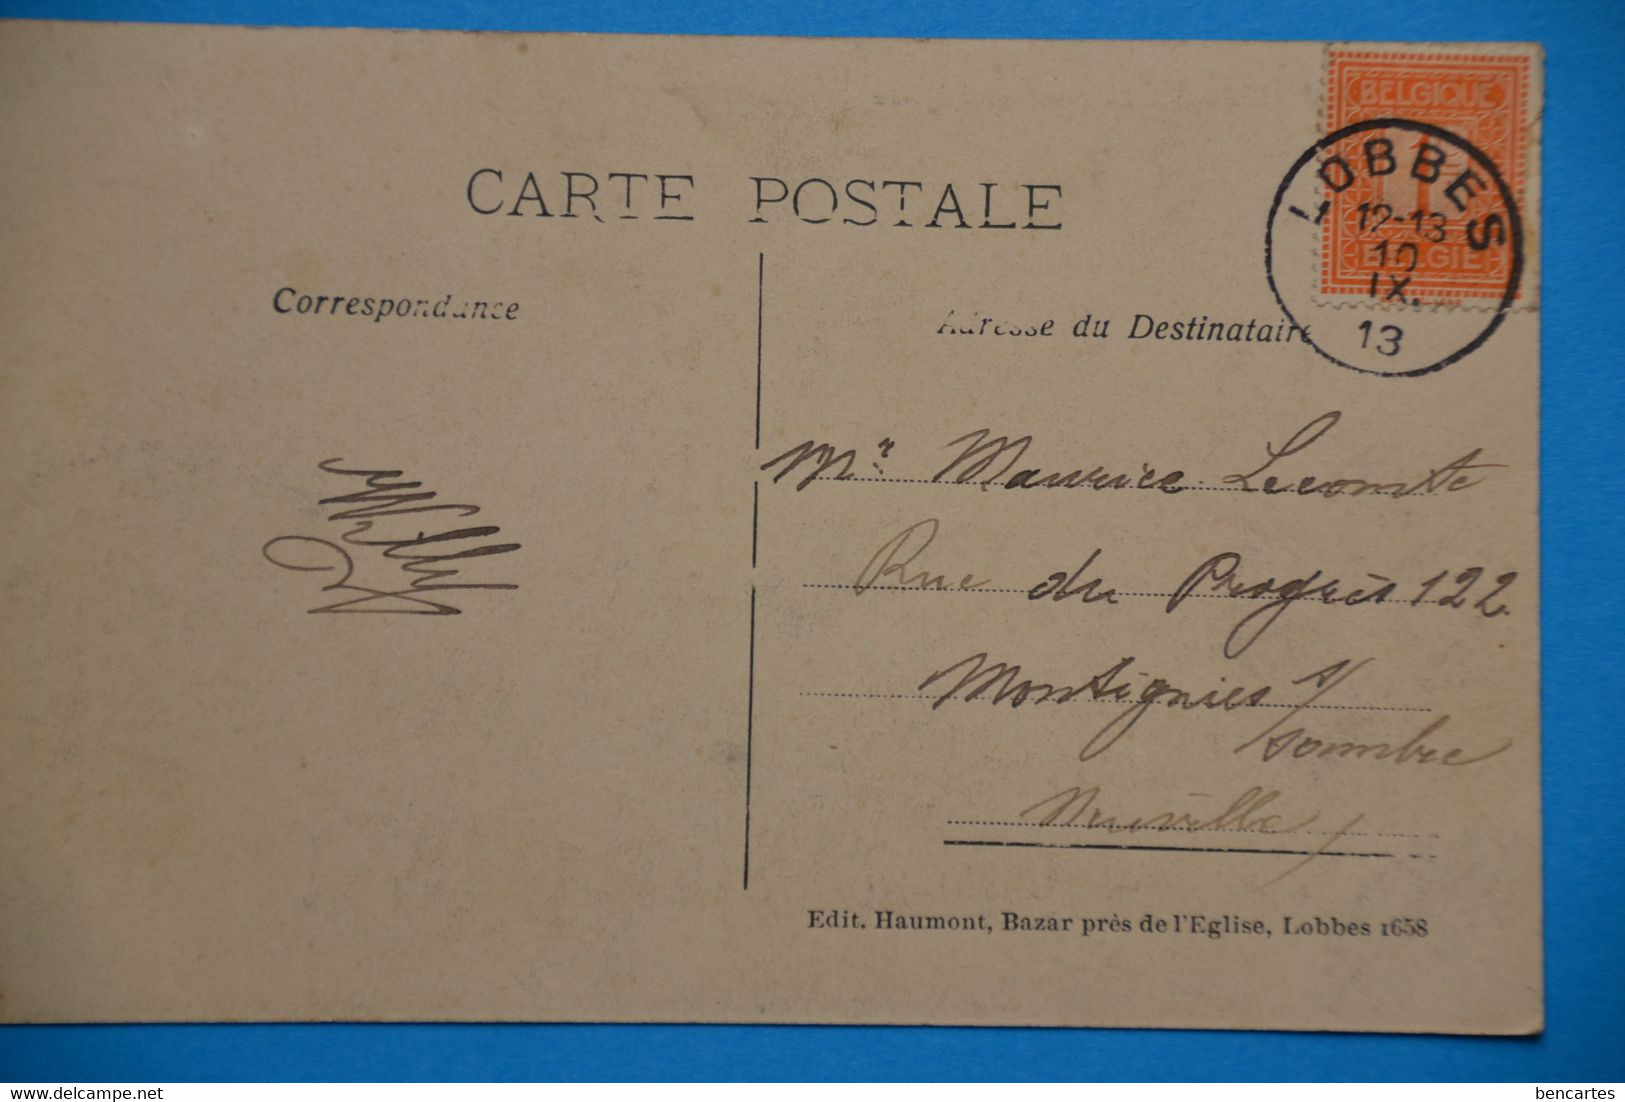 CARTE POSTALE
Correspondance
Adresse du Destinataire
BELGIQUE
1
BELGIË
LOBBES
12-13
10
IX.
13
Willy
Mr Maurice Lecomte
Rue du Progrès 122
Montignies s/
Sambre
Neuville
Edit. Haumont, Bazar près de l'Eglise, Lobbes 1658
bencartes